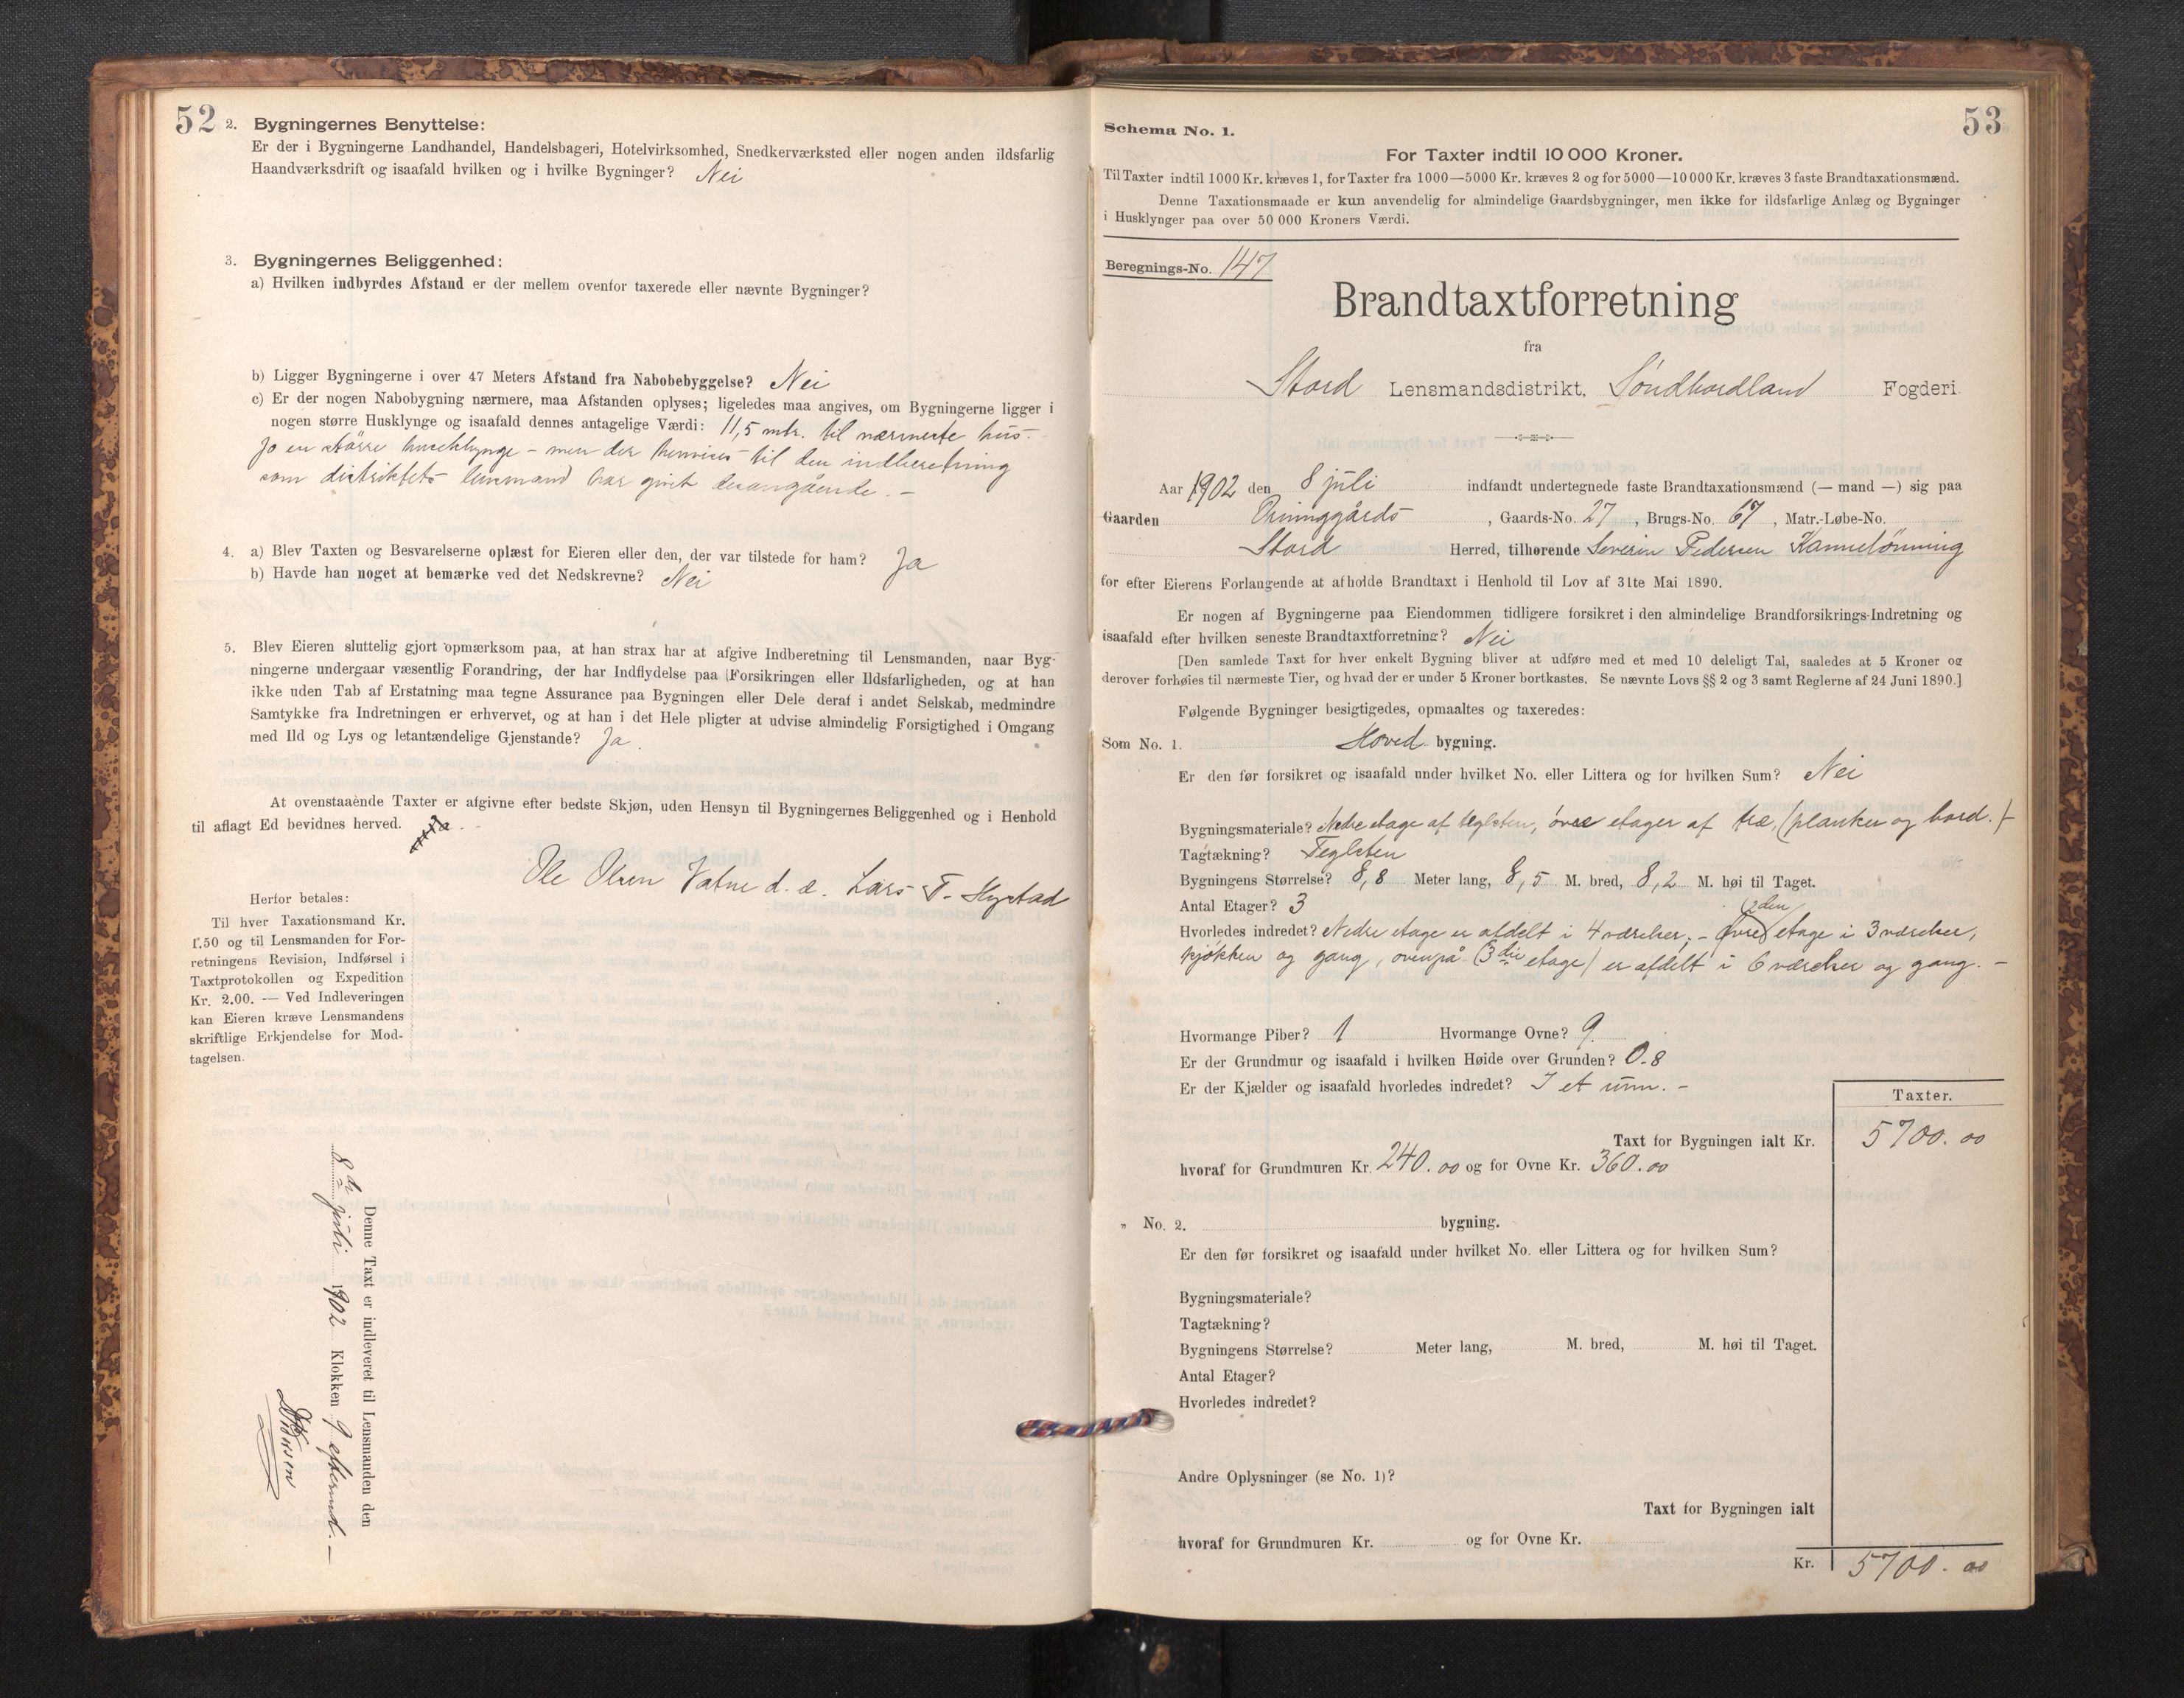 52
2. Bygningernes Benyttelse:
Er der i Bygningerne Landhandel, Handelsbageri, Hotelvirksomhed, Snedkerværksted eller nogen anden ildsfarlig
Haandværksdrift og isaafald hvilken og i hvilke Bygninger? Nei
3. Bygningernes Beliggenhed:
a) Hvilken indbyrdes Afstand er der mellem ovenfor taxerede eller nævnte Bygninger?
b) Ligger Bygningerne i over 47 Meters Afstand fra Nabobebyggelse? Nei
c) Er der nogen Nabobygning nærmere, maa Afstanden oplyses; ligeledes maa angives, om Bygningerne ligger i
nogen større Husklynge og isaafald dennes antagelige Værdi: 11,5 mtr. til nærmeste hus. -
Jo en större huseklynge - men der henvises til den indberetning
som distriktets lensmand har givet desangående. -
4. a) Blev Taxten og Besvarelserne oplæst for Eieren eller den, der var tilstede for ham? Ja
b) Havde han noget at bemærke ved det Nedskrevne? Nei
5. Blev Eieren sluttelig gjort opmærksom paa, at han strax har at afgive Indberetning til Lensmanden, naar Byg-
ningerne undergaar væsentlig Forandring, der har Indflydelse paa Forsikringen eller Ildsfarligheden, og at han
ikke uden Tab af Erstatning maa tegne Assurance paa Bygningen eller Dele deraf i andet Selskab, medmindre
Samtykke fra Indretningen er erhvervet, og at han i det Hele pligter at udvise almindelig Forsigtighed i Omgang
med Ild og Lys og letantændelige Gjenstande? Ja.
At ovenstaaende Taxter er afgivne efter bedste Skjøn, uden Hensyn til Bygningernes Beliggenhed og i Henhold
til aflagt Ed bevidnes herved.
Ole Olsen Vatne d. æ. Lars T. Hystad
Herfor betales:
Til hver Taxationsmand Kr.
1.50 og til Lensmanden for For-
retningens Revision, Indførsel i
Taxtprotokollen og Expedition
Kr. 2.00. — Ved Indleveringen
kan Eieren kræve Lensmandens
skriftlige Erkjendelse for Mod-
tagelsen.
Denne Taxt er indleveret til Lensmanden den
8de juli 1902 Klokken 9 efterm. -
53
Schema No. 1.
For Taxter indtil 10 000 Kroner.
Til Taxter indtil 1000 Kr. kræves 1, for Taxter fra 1000—5000 Kr. kræves 2 og for 5000—10 000 Kr. kræves 3 faste Brandtaxationsmænd.
Denne Taxationsmaade er kun anvendelig for almindelige Gaardsbygninger, men ikke for ildsfarlige Anlæg og Bygninger
i Husklynger paa over 50 000 Kroners Værdi.
Beregnings-No. 147
Brandtaxtforretning
fra
Stord Lensmandsdistrikt, Söndhordland Fogderi
Aar 1902 den 8 juli indfandt undertegnede faste Brandtaxationsmænd (— mand —) sig paa
Gaarden , Gaards-No. 27, Brugs-No. 67, Matr.-Løbe-No.
Stord Herred, tilhørende Severin Pedersen Kannelönning
for efter Eierens Forlangende at afholde Brandtaxt i Henhold til Lov af 31te Mai 1890.
Er nogen af Bygningerne paa Eiendommen tidligere forsikret i den almindelige Brandforsikrings-Indretning og
isaafald efter hvilken seneste Brandtaxtforretning? Nei
[Den samlede Taxt for hver enkelt Bygning bliver at udføre med et med 10 deleligt Tal, saaledes at 5 Kroner og
derover forhøies til nærmeste Tier, og hvad der er under 5 Kroner bortkastes. Se nævnte Lovs §§ 2 og 3 samt Reglerne af 24 Juni 1890.]
Følgende Bygninger besigtigedes, opmaaltes og taxeredes:
Som No. 1. Hoved bygning.
Er den før forsikret og isaafald under hvilket No. eller Littera og for hvilken Sum? Nei
Bygningsmateriale? Nedre etage af teglsten, övre etager af træ, (planker og bord.) -
Tagtækning? Teglsten
Bygningens Størrelse? 8,8 Meter lang, 8,5 M. bred, 8,2 M. høi til Taget.
Antal Etager? 3
(2den)
Hvorledes indredet? Nedre etage er afdelt i 4 værelser; - övre etage i 3 værelser,
kjökken og gang, ovenpå (3die etage) er afdelt i 6 værelser og gang. -
Hvormange Piber? 1 Hvormange Ovne? 9.
Er der Grundmur og isaafald i hvilken Høide over Grunden? 0.8
Er der Kjælder og isaafald hvorledes indredet? I et rum. -
Taxter.
Taxt for Bygningen ialt Kr. 5700.00
hvoraf for Grundmuren Kr. 240.00 og for Ovne Kr. 360.00
" No. 2. bygning.
Er den før forsikret og isaafald under hvilket No. eller Littera og for hvilken Sum?
Bygningsmateriale?
Tagtækning?
Bygningens Størrelse? Meter lang, M. bred, M. høi til Taget.
Antal Etager?
Hvorledes indredet?
Andre Oplysninger (se No. 1)?
Taxt for Bygningen ialt
hvoraf for Grundmuren Kr. og for Ovne Kr.
Kr. 5700.00